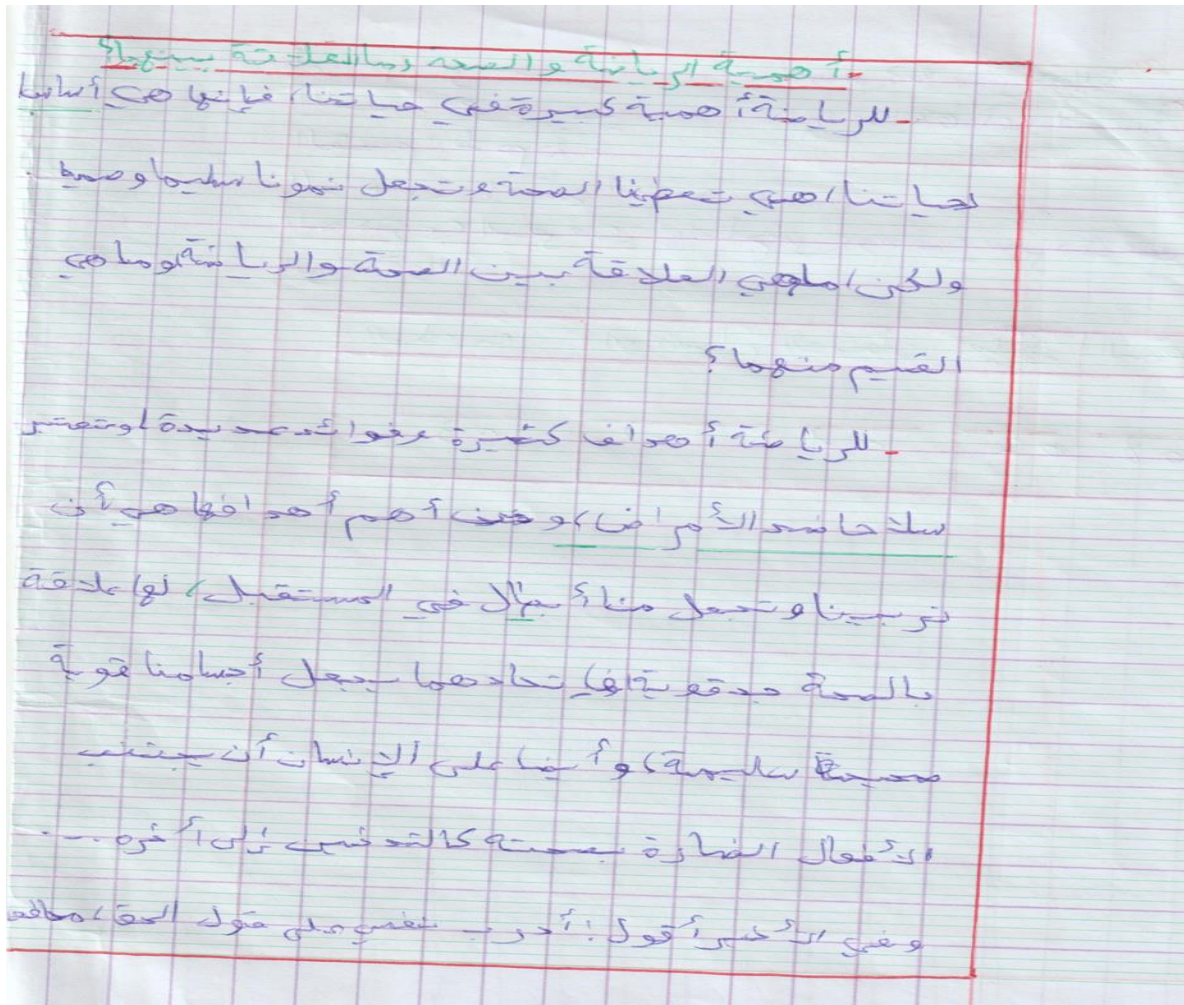 - أهمية الرياضة والصحة وما العلاقة بينهما؟
- للرياضة أهمية كبيرة في حياتنا، فإنها هي أساسا
لحياتنا، هي تعطينا الصحة وتجعل نمونا سليما وصحيا.
ولكن، ما هي العلاقة بين الصحة والرياضة، وما هي
القيم منهما؟
- للرياضة أهداف كثيرة وفوائد عديدة، وتعتبر
سلاحا ضد الأمراض، ومن أهم أهدافها هي أن
تربينا وتجعل منا أجيال في المستقبل، لها علاقة
بالصحة جد قوية، فإتحادهما يجعل أجسامنا قوية
صحيحة سليمة، وأيضا على الإنسان أن يجتنب
الأفعال الضارة بصحته كالتدخين إلى أخره...
وفي الأخير أقول: أدرب نفسي على قول الحق،